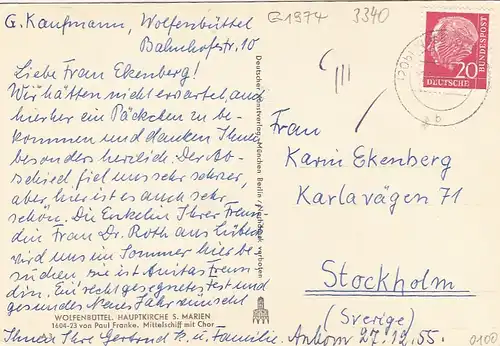 G. Kaufmann, Wolfenbüttel
Bahnhofstr. 10
G1974 3340
Liebe Frau Ekenberg!
Wir hätten nicht erwartet, auch
hierher ein Päckchen zu be-
kommen und danken Ihnen
besonders herzlich. Der Ab-
schied fiel uns sehr schwer,
aber hier ist es auch sehr
schön. Die Enkelin Ihrer Freun-
din Frau Dr. Roth aus Lübeck
wird uns im Sommer hier be-
suchen, sie ist Anitas Freun-
din. Ein recht gesegnetes Fest und
gesundes Neues Jahr wünscht
Ihnen Ihre Gertrud K. u. Familie.
WOLFENBÜTTEL. HAUPTKIRCHE S. MARIEN
1604-23 von Paul Franke. Mittelschiff mit Chor
Deutscher Kunstverlag München Berlin / Nachdruck verboten
DEUTSCHE BUNDESPOST
20
Frau
Karin Ekenberg
Karlavägen 71
Stockholm
(Sverige)
Ankom 27.12.55.
0100